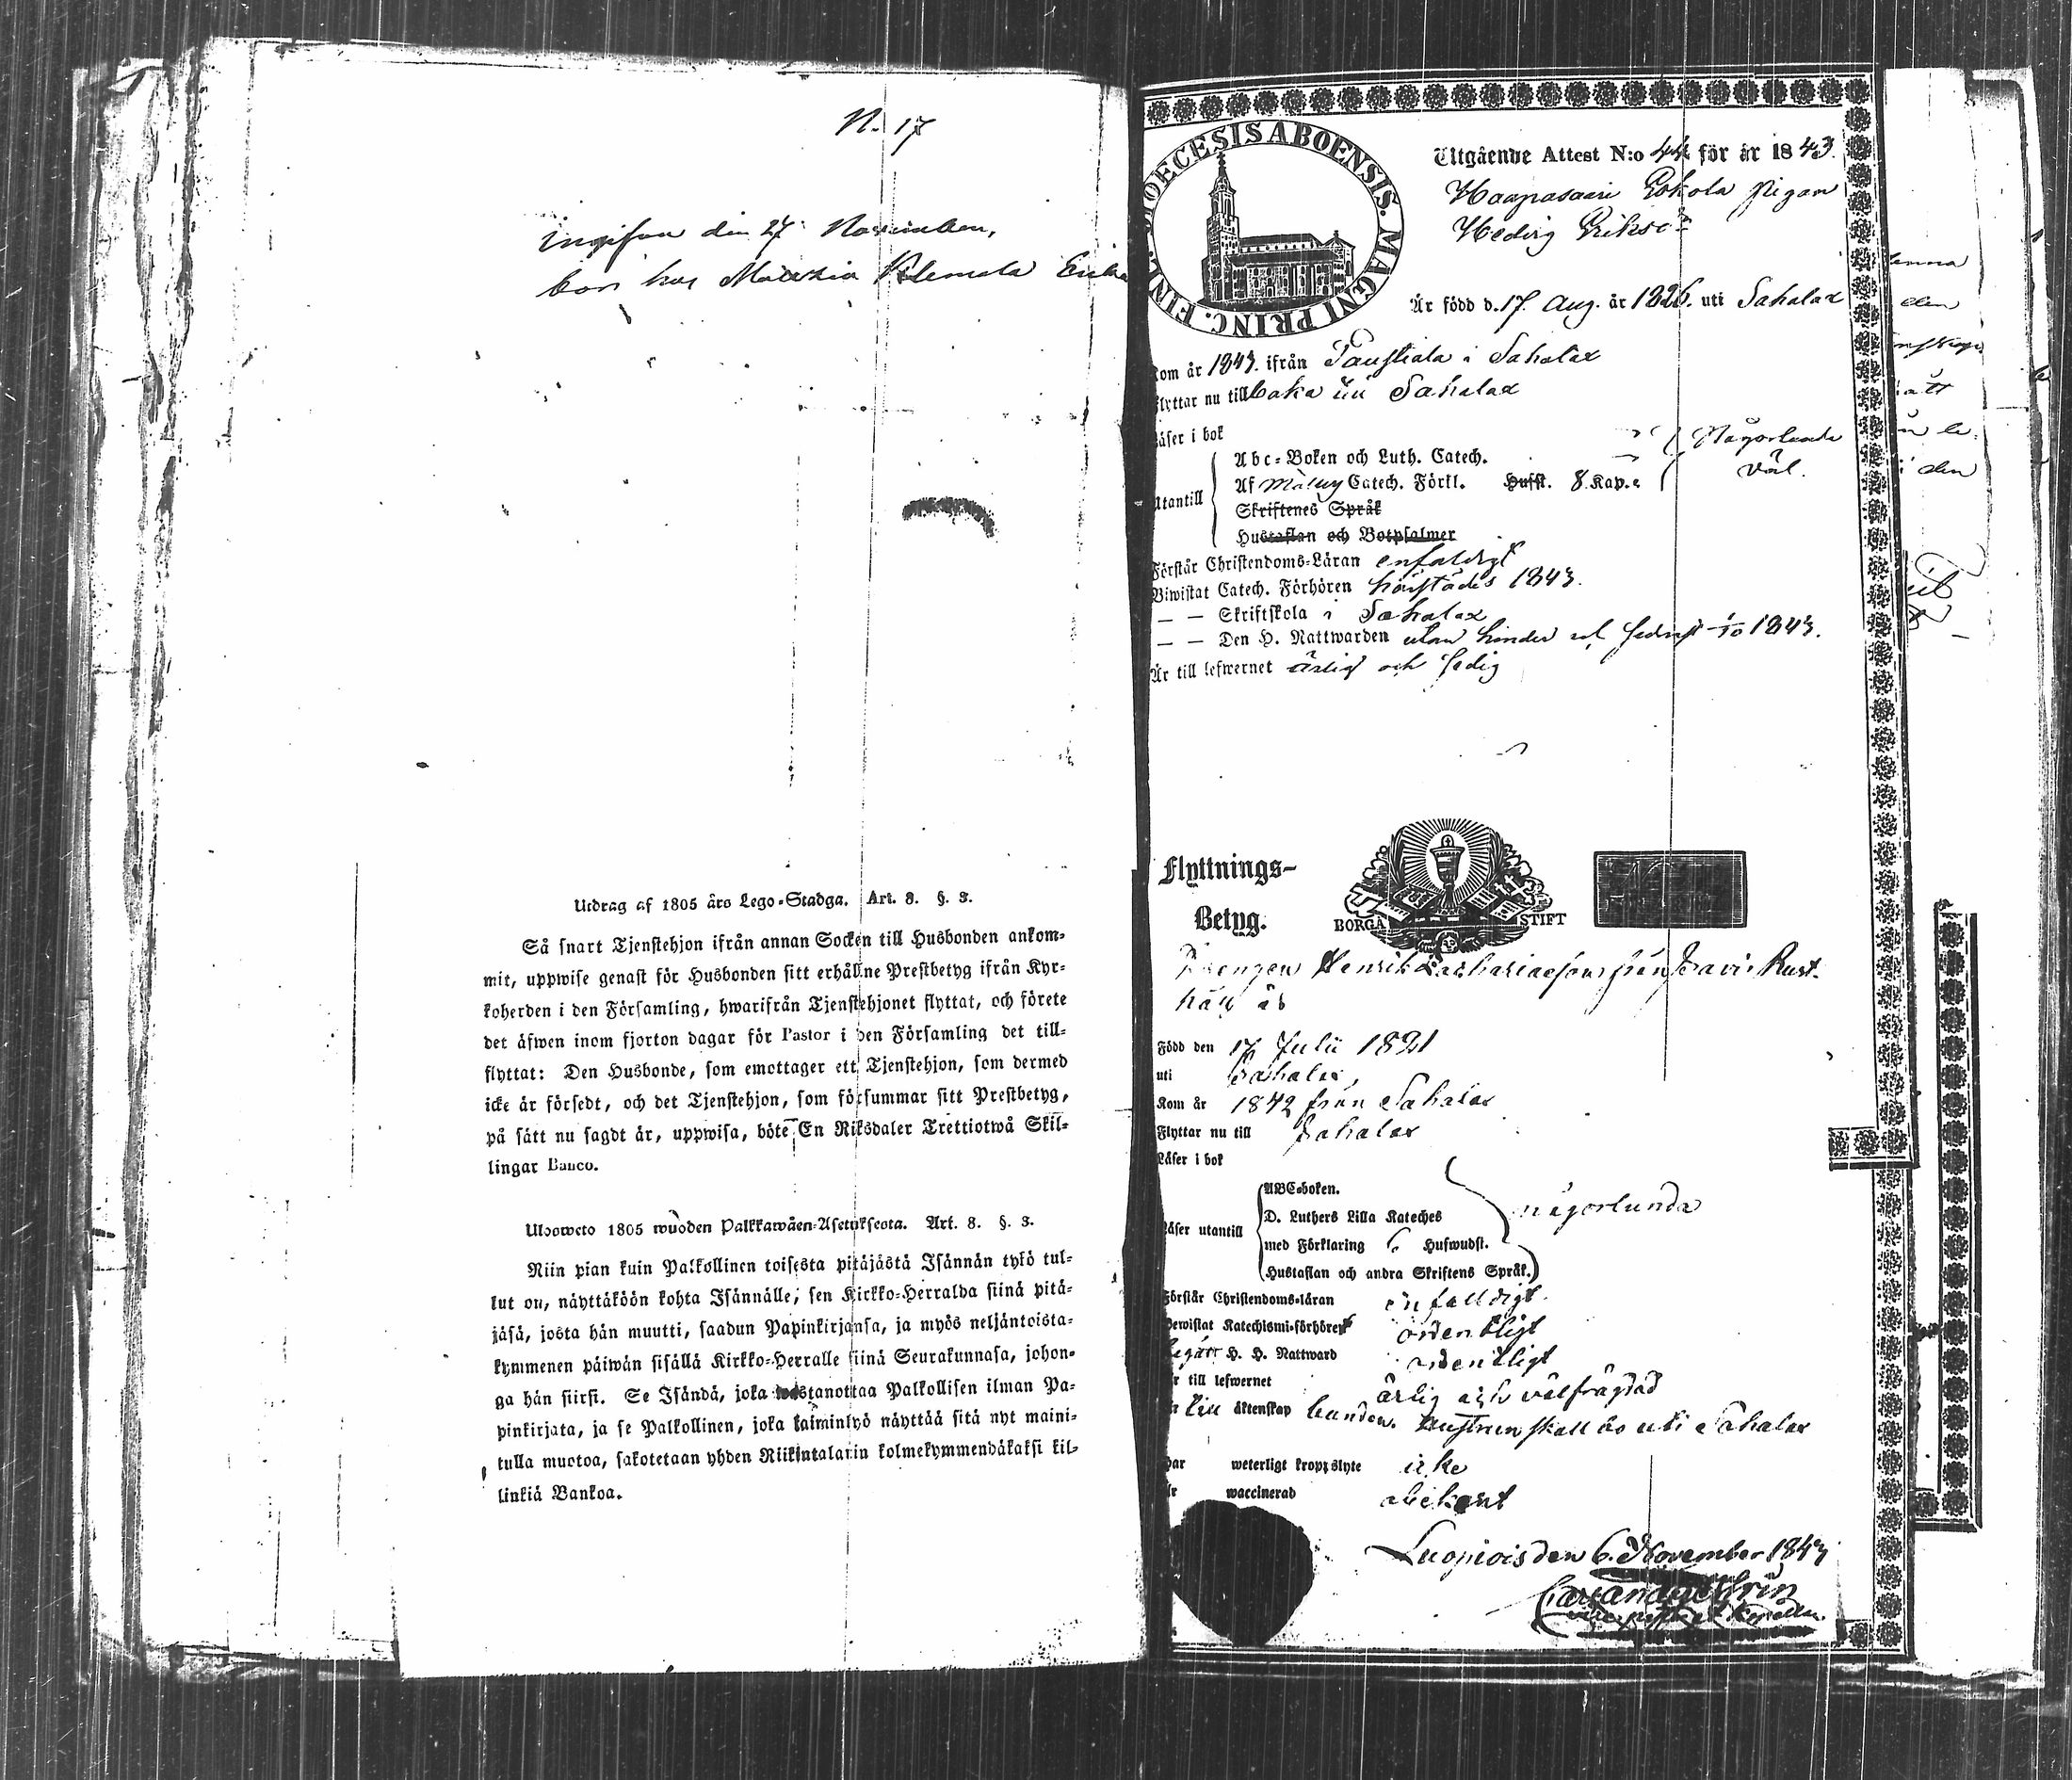 N. 17
den 27 November,
bor hos Klemola
Utdrag af 1805 års Lego-Stadga. Art. 8. §. 3.
Så snart Tjenstehjon ifrån annan Socken till Husbonden ankom-
mit, uppwise genast för Husbonden sitt erhållne Prestbetyg ifrån Kyr-
koherden i den Församling, hwarifrån Tjenstehjonet flyttat, och förete
det äfwen inom fjorton dagar för Pastor i den Församling det till-
flyttat: Den Husbonde, som emottager ett Tjenstehjon, som dermed
icke är försedt, och det Tjenstehjon, som försummar sitt Prestbetyg,
på sätt nu sagdt är, uppwisa, böte En Riksdaler Trettiotwå Skil-
lingar Banco.
Ulosweto 1805 wuoden Palkkawäen-Asetuksesta. Art. 8. §. 3.
Niin pian kuin Palkollinen toisesta pitäjästä Isännän tykö tul-
lut on, näyttäköön kohta Isännälle, sen Kirkko-Herralda siinä pitä-
jäsä, josta hän muutti, saadun Papinkirjansa, ja myös neljäntoista-
kymmenen päiwän sisällä Kirkko-Herralle siinä Seurakunnasa, johon-
ga hän siirsi. Se Isändä, joka wastanottaa Palkollisen ilman Pa-
pinkirjata, ja se Palkollinen, joka laiminlyö näyttää sitä nyt maini-
tulla muotoa, sakotetaan yhden Riikintalarin kolmekymmendäkaksi kil-
linkiä Bankoa.
DIOECESIS ABOENSIS. MAGNI PRINC. FINL.
Utgående Attest N:o 44 för år 1843.
Haapasaari Eskola pigan
Hedvig Eriksd:r
Är född d. 17. Aug. år 1826. uti Sahalax
Kom år 1843. ifrån Taustiala i Sahalax
Flyttar nu tillbaka till Sahalax
Läser i bok
Någorlunda
väl.
Utantill
Abc-Boken och Luth. Catech.
Af Catech. Förkl. Hufst. 8. Kap.
Skriftenes Språk
Hustaflan och Botpsalmer
Förstår Christendoms-Läran enfaldigt
Biwistat Catech. Förhören härstädes 1843.
— — Skriftskola i Sahalax
— — Den H. Nattwarden utan hinder 1843.
Är till lefwernet ärlig och sedig
Flyttnings-
Betyg.
BORGÅ STIFT
Drengen Henrik Zachariaeson från Rust-
håll är
Född den 17 Julii 1821
uti Sahalax,
Kom år 1842 från Sahalax
Flyttar nu till Sahalax
Läser i bok
Läser utantill
ABC-boken.
D. Luthers Lilla Kateches
med Förklaring 6 Hufwudst.
Hustaflan och andra Skriftens Språk.
någorlunda
Förstår Christendoms-läran enfaldigt.
Bewistat Katechismi-förhören ordentligt
Begått H. H. Nattward ordentligt
Är till lefwernet ärlig och välfrägdad
Är till äktenskap bunden. skall bo uti Sahalax
Har weterligt kroppslyte icke
Är waccinerad obekant
Luopiois den 6. November 1843